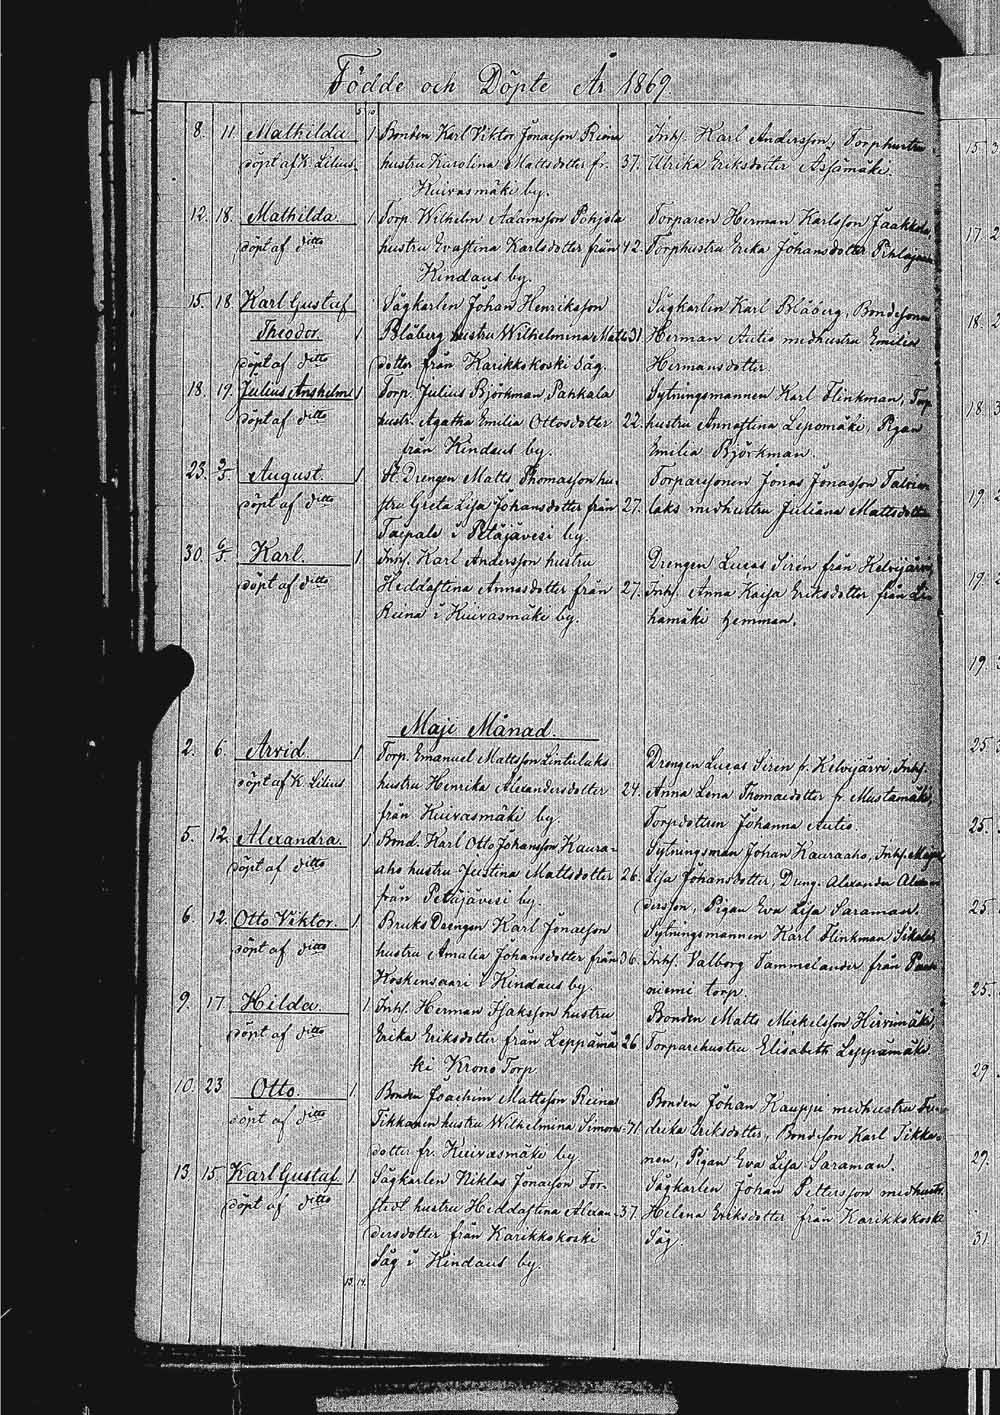 Födde och Döpte År 1869
8. 11. Mathilda 1 Bonden Karl Viktor Jonasson Reina Inhs. Karl Andersson, Torphustru
döpt af K. Lilius. hustru Karolina Mattsdotter fr. 37. Ulrika Eriksdotter Assämäki.
Kuivasmäki by.
12. 18. Mathilda. 1 Torp. Wilhelm Adamsson Pohjola Torparen Herman Karlsson Jaakkola,
döpt af ditto hustru Evastina Karlsdotter från 42. Torphustru Erika Johansdotter
Kindaus by.
15. 18 Karl Gustaf Sågkarlen Johan Henriksson Sågkarlen Karl Blåberg, Bondesonen
Theodor. 1 Blåberg hustru Wilhelmina Matts 31. Herman Autio med hustru Emilia
döpt af ditto dotter från Karikkokoski Såg. Hermansdotter.
18. 19. Julius Anshelm 1 Torp. Julius Björkman, Pahkala Sytningsmannen Karl Flinkman, Torp
döpt af ditto hustr. Agatha Emilia Ottosdotter 22. hustru Annastina Lepomäki, Pigan
från Kindaus by. Emilia Björkman.
23. 2/5. August. 1. St. Drengen Matts Thomasson hu- Torparesonen Jonas Jonasson
döpt af ditto stru Greta Lisa Johansdotter från 27. laks med hustru Juliana Mattsdotter
Taipale i Petäjävesi by.
30. 6/5. Karl. 1. Inhs. Karl Andersson hustru Drengen Lucas Sirén från Kelvijärvi,
döpt af ditto Heddastina Annasdotter från 27. Inhs. Anna Kaisa Eriksdotter från
Reina i Kuivasmäki by. hamäki hemman.
Maji Månad.
2. 6. Arvid 1. Torp. Emanuel Mattsson Lintulaks Drengen Lucas Siren fr. Kelvijärvi, Inhs.
döpt af K. Lilius hustru Henrika Alexandersdotter 24. Anna Lena Thomasdotter fr. Mustamäki,
från Kuivasmäki by. Torpdottren Johanna Autio.
5. 12. Alexandra. 1 Bond. Karl Otto Johansson Kaura- Sytningsman Johan Kauraaho, Inhs. Maja
döpt af ditto aho hustru Justina Mattsdotter 26. Lisa Johansdotter, Dreng. Alexander Alexan-
från Petäjävesi by. dersson, Pigan Eva Lisa Saraman.
6. 12. Otto Viktor. 1 Bruks Drengen Karl Jonasson Sytningsmannen Karl Flinkman
döpt af ditto hustru Amalia Johansdotter från 36. Inhs. Valborg Tammelander från
Koskensaari i Kindaus by. niemi torp.
9. 17. Hilda. 1 Inhs. Herman Isaksson hustru Bonden Matts Mickelsson Hirvimäki,
döpt af ditto Erika Eriksdotter från Leppämä 26 Torparehustru Elisabeth Leppämäki.
ki Krono Torp
10. 23 Otto. 1. Bonden Joachim Mattsson Reina Bonden Johan Kauppi med hustru Fre-
döpt af ditto Tikkanen hustru Wilhelmina Simons- 41. drika Eriksdotter, Bondeson Karl Tikka-
dotter fr. Kuivasmäki by nen, Pigan Eva Lisa Saraman.
13. 15. Karl Gustaf 1 Sågkarlen Niklas Jonasson For- Sågkarlen Johan Pettersson med hustr.
döpt af ditto stedt hustru Heddastina Alexan- 37. Helena Eriksdotter från Karikkokoski
dersdotter från Karikkokoski Såg.
Såg i Kindaus by.
13. 14.